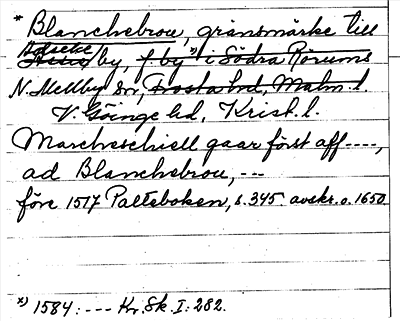 * Blanchebrou, gränsmärke till
Böketeby, f. by *) i Södra Rörums
N. Mellby sn, Frosta hd, Malm. l.
V. Göinge hd, Krist. l.
Marcheschiell gaar först aff ----,
ad Blanchebrou, ---
före 1517 Palteboken, s. 345. avskr. o. 1650.
*) 1584: --- Kr. Sk. I: 282.